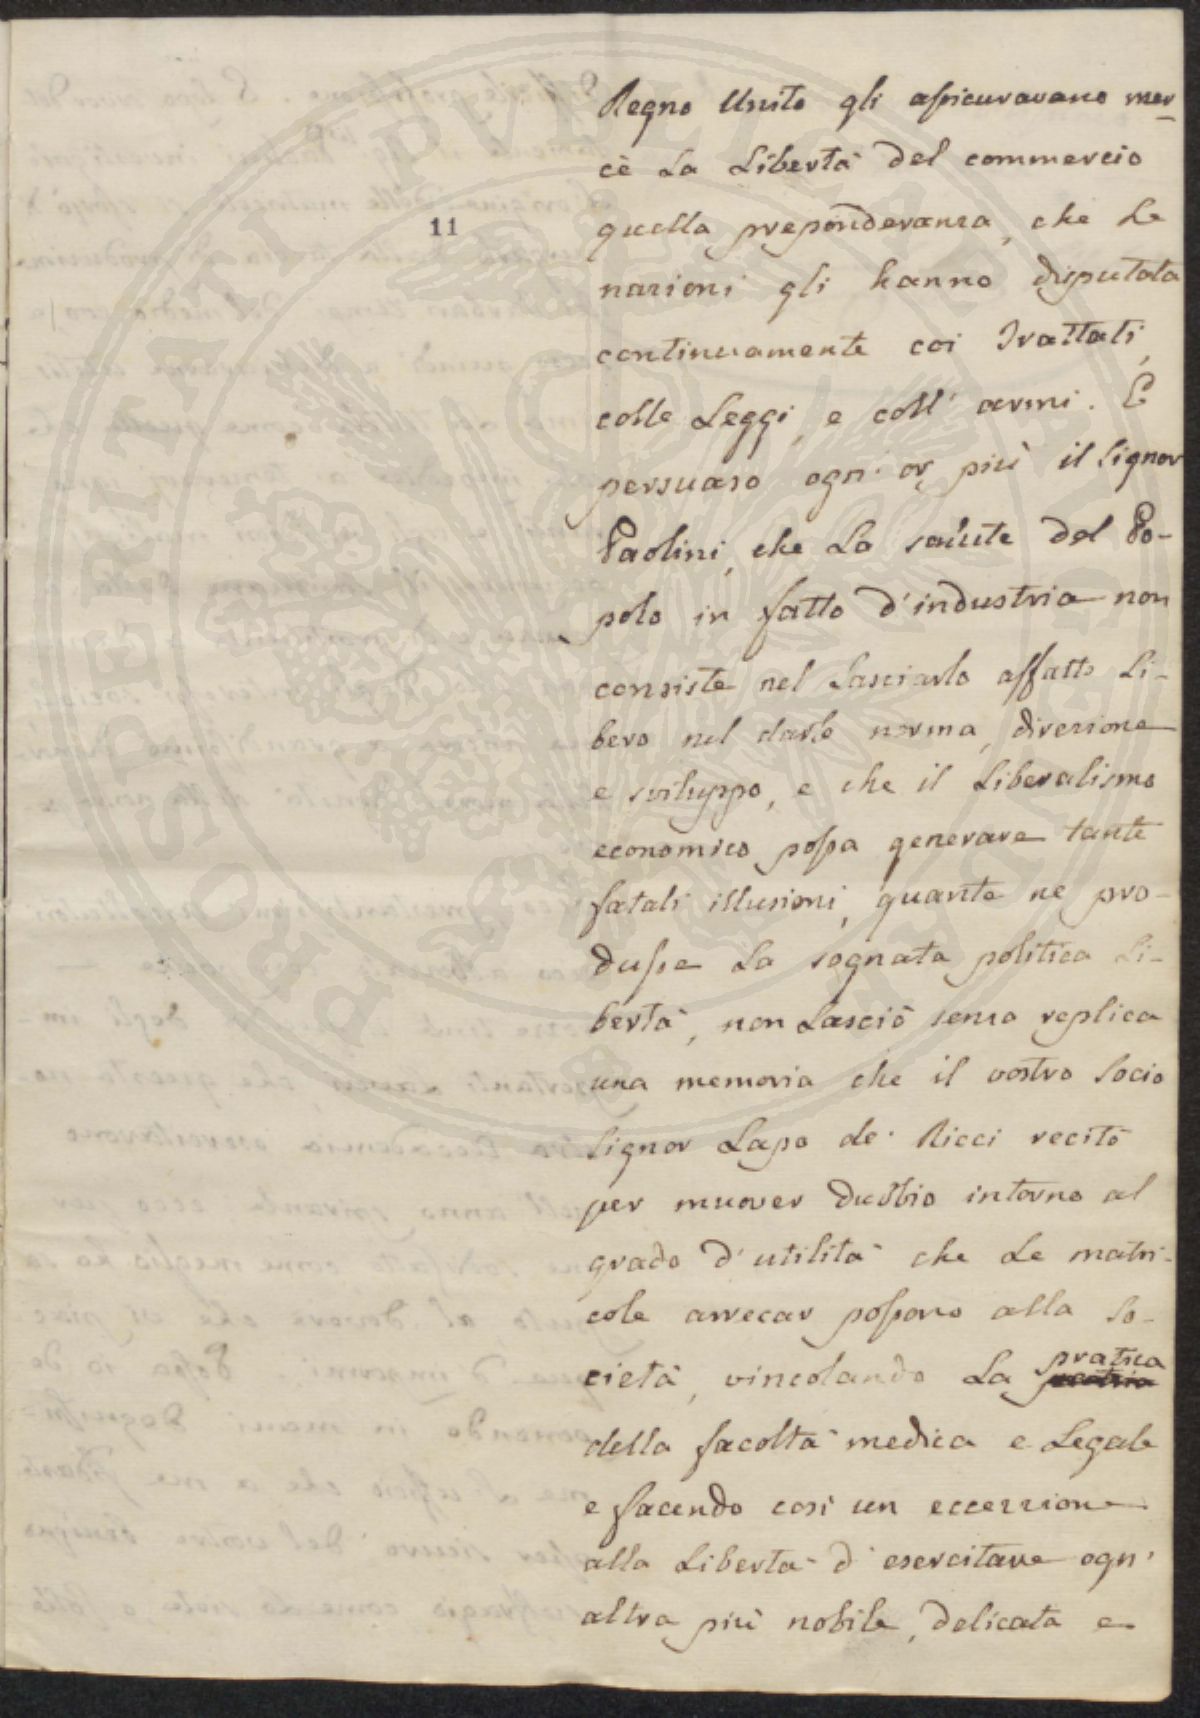 11
Regno Unito gli assicuravano mer-
cè La Libertà del commercio
quella preponderanza, che Le
nazioni gli hanno disputata
continuamente coi Trattati,
colle Leggi, e coll' armi. E
persuaso ogn' or più il Signor
Paolini, che La salute del Po-
polo in fatto d'industria non
consiste nel Lasciarlo affatto Li-
bero nel darle norma, direzione
e sviluppo, e che il Liberalismo
economico possa generare tante
fatali illusioni, quante ne pro-
dusse La sognata politica Li-
bertà, non Lasciò senza replica
una memoria che il vostro Socio
Signor Lapo de' Ricci recitò
per muover dubbio intorno al
grado d'utilità che Le matri-
cole arrecar possono alla So-
cietà, vincolando La pratica
della facoltà medica e Legale
e facendo così un eccezzione
alla Libertà d'esercitare ogn'
altra più nobile, delicata e
PROSPERITATI PVBLICAE AVGENDAE